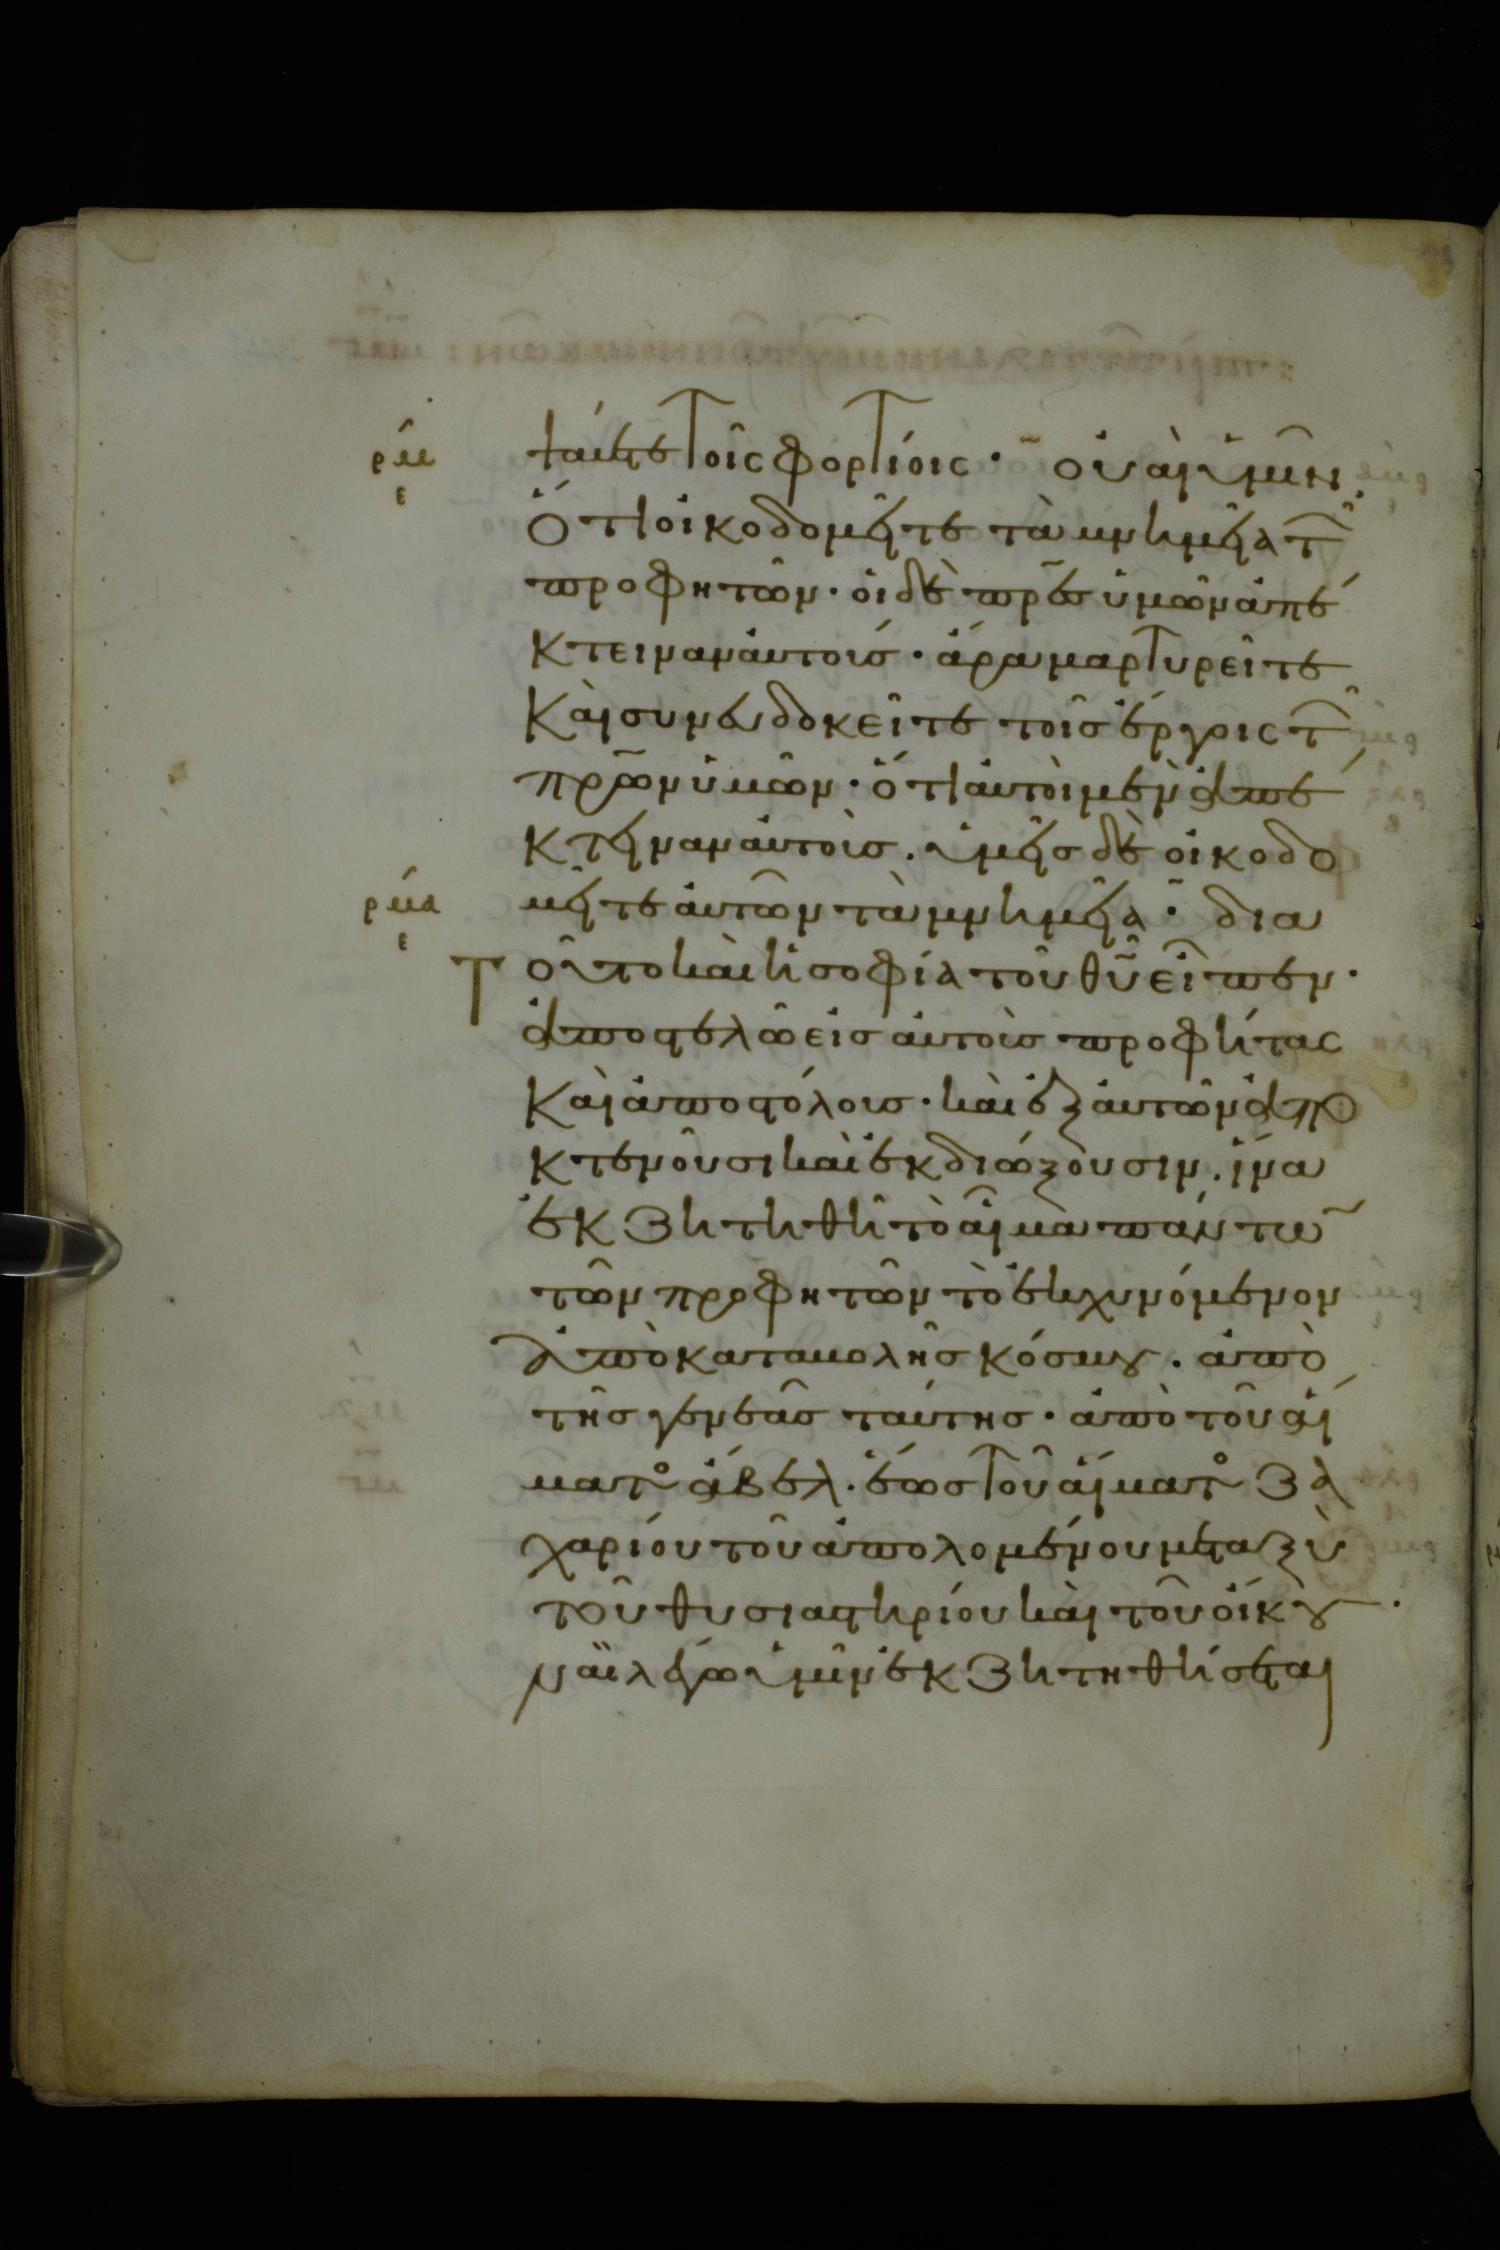 ρμ
ε
ψαύετε τοῖς φορτίοις· οὐαὶ ὑμῖν.
ὅτι οἰκοδομεῖτε τὰ μνημεῖα τ῀
προφητῶν· οἱ δὲ πρ̅ε̅ς ὑμῶν ἀπέ
κτειναν αὐτούς· ἄρα μαρτυρεῖτε
καὶ συνευδοκεῖτε τοῖς ἔργοις τ῀
πρ̅ω̅ν ὑμῶν· ὅτι αὐτοὶ μὲν ἀπέ
κτειναν αὐτοὺς. ὑμεῖς δὲ οἰκοδο
ρμα
ε
μεῖτε αὐτῶν τὰ μνημεῖα· δια
τοῦτο καὶ ἡ σοφία τοῦ θ̅υ̅ εἶπεν·
ἀποστελῶ εἰς αὐτοὺς προφήτας
καὶ ἀποστόλους· καὶ ἐξ αὐτῶν ἀπο
κτενοῦσι καὶ ἐκδιώξουσιν. ἵνα
ἐκζητηθῆ τὸ αἷμα πάντω̅
τῶν προφητῶν τὸ ἐκχυνόμενον
ἀπὸ καταβολῆς κόσμου. ἀπὸ
τῆς γενεᾶς ταύτης· ἀπὸ τοῦ αἵ
ματος ἄβελ. ἕως τοῦ αἵματος ζα
χαρίου τοῦ ἀπολομένου μεταξὺ
τοῦ θυσιαστηρίου καὶ τοῦ οἴκου.
ναὶ λέγω ὑμῖν ἐκζητηθήσεται